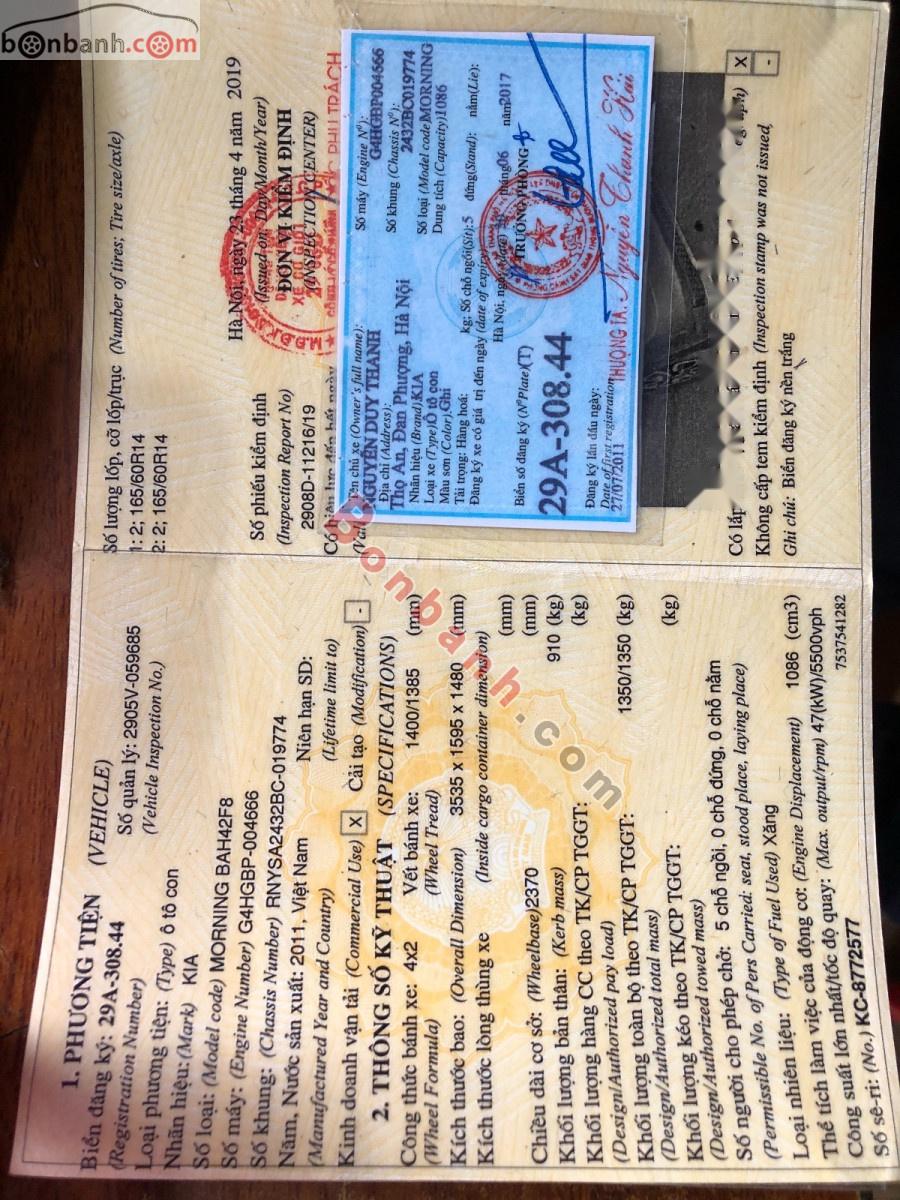 bonbanh.com
1. PHƯƠNG TIỆN (VEHICLE)
Biển đăng ký: 29A-308.44 Số quản lý: 2905V-059685
(Registration Number) (Vehicle Inspection No.)
Loại phương tiện: (Type) ô tô con
Nhãn hiệu: (Mark) KIA
Số loại: (Model code) MORNING BAH42F8
Số máy: (Engine Number) G4HGBP-004666
Số khung: (Chassis Number) RNYSA2432BC-019774
Năm, Nước sản xuất: 2011, Việt Nam Niên hạn SD:
(Manufactured Year and Country) (Lifetime limit to)
Kinh doanh vận tải (Commercial Use) X Cải tạo (Modification) -
2. THÔNG SỐ KỸ THUẬT (SPECIFICATIONS)
Công thức bánh xe: 4x2 Vết bánh xe: 1400/1385 (mm)
(Wheel Formula) (Wheel Tread)
Kích thước bao: (Overall Dimension) 3535 x 1595 x 1480 (mm)
Kích thước lòng thùng xe (Inside cargo container dimension)
(mm)
Chiều dài cơ sở: (Wheelbase) 2370 (mm)
Khối lượng bản thân: (Kerb mass) 910 (kg)
Khối lượng hàng CC theo TK/CP TGGT: (kg)
(Design/Authorized pay load)
Khối lượng toàn bộ theo TK/CP TGGT: 1350/1350 (kg)
(Design/Authorized total mass)
Khối lượng kéo theo TK/CP TGGT: (kg)
(Design/Authorized towed mass)
Số người cho phép chở: 5 chỗ ngồi, 0 chỗ đứng, 0 chỗ nằm
(Permissible No. of Pers Carried: seat, stood place, laying place)
Loại nhiên liệu: (Type of Fuel Used) Xăng
Thể tích làm việc của động cơ: (Engine Displacement) 1086 (cm3)
Công suất lớn nhất/tốc độ quay: (Max. output/rpm) 47(kW)/5500vph
Số sê-ri: (No.) KC-8772577 7537541282
Số lượng lốp, cỡ lốp/trục (Number of tires; Tire size/axle)
1: 2; 165/60R14
2: 2; 165/60R14
Hà Nội, ngày 23 tháng 4 năm 2019
(Issued on: Day/Month/Year)
Số phiếu kiểm định ĐƠN VỊ KIỂM ĐỊNH
(Inspection Report No) (INSPECTION CENTER)
2908D-11216/19
PHỤ TRÁCH
Tên chủ xe (Owner's full name): Số máy (Engine Nº):
NGUYỄN DUY THANH G4HGBP004666
Địa chỉ (Address): Số khung (Chassis Nº):
Thọ An, Đan Phượng, Hà Nội 2432BC019774
Nhãn hiệu (Brand) KIA Số loại (Model code) MORNING
Loại xe (Type) Ô tô con Dung tích (Capacity) 1086
Màu sơn (Color) Ghi
Tải trọng: Hàng hoá: kg; Số chỗ ngồi(Sit): 5 đứng(Stand): nằm(Lie):
Đăng ký xe có giá trị đến ngày (date of expiry)
Hà Nội, ngày (date) tháng 06 năm 2017
Biển số đăng ký (NºPlate)(T) TRƯỞNG PHÒNG
29A-308.44
Đăng ký lần đầu ngày:
Date of first registration
27/07/2011
THƯỢNG TÁ: Nguyễn Thanh Hải
Có lắp X
Không cấp tem kiểm định (Inspection stamp was not issued) -
Ghi chú: Biển đăng ký nền trắng
Bonbanh.com